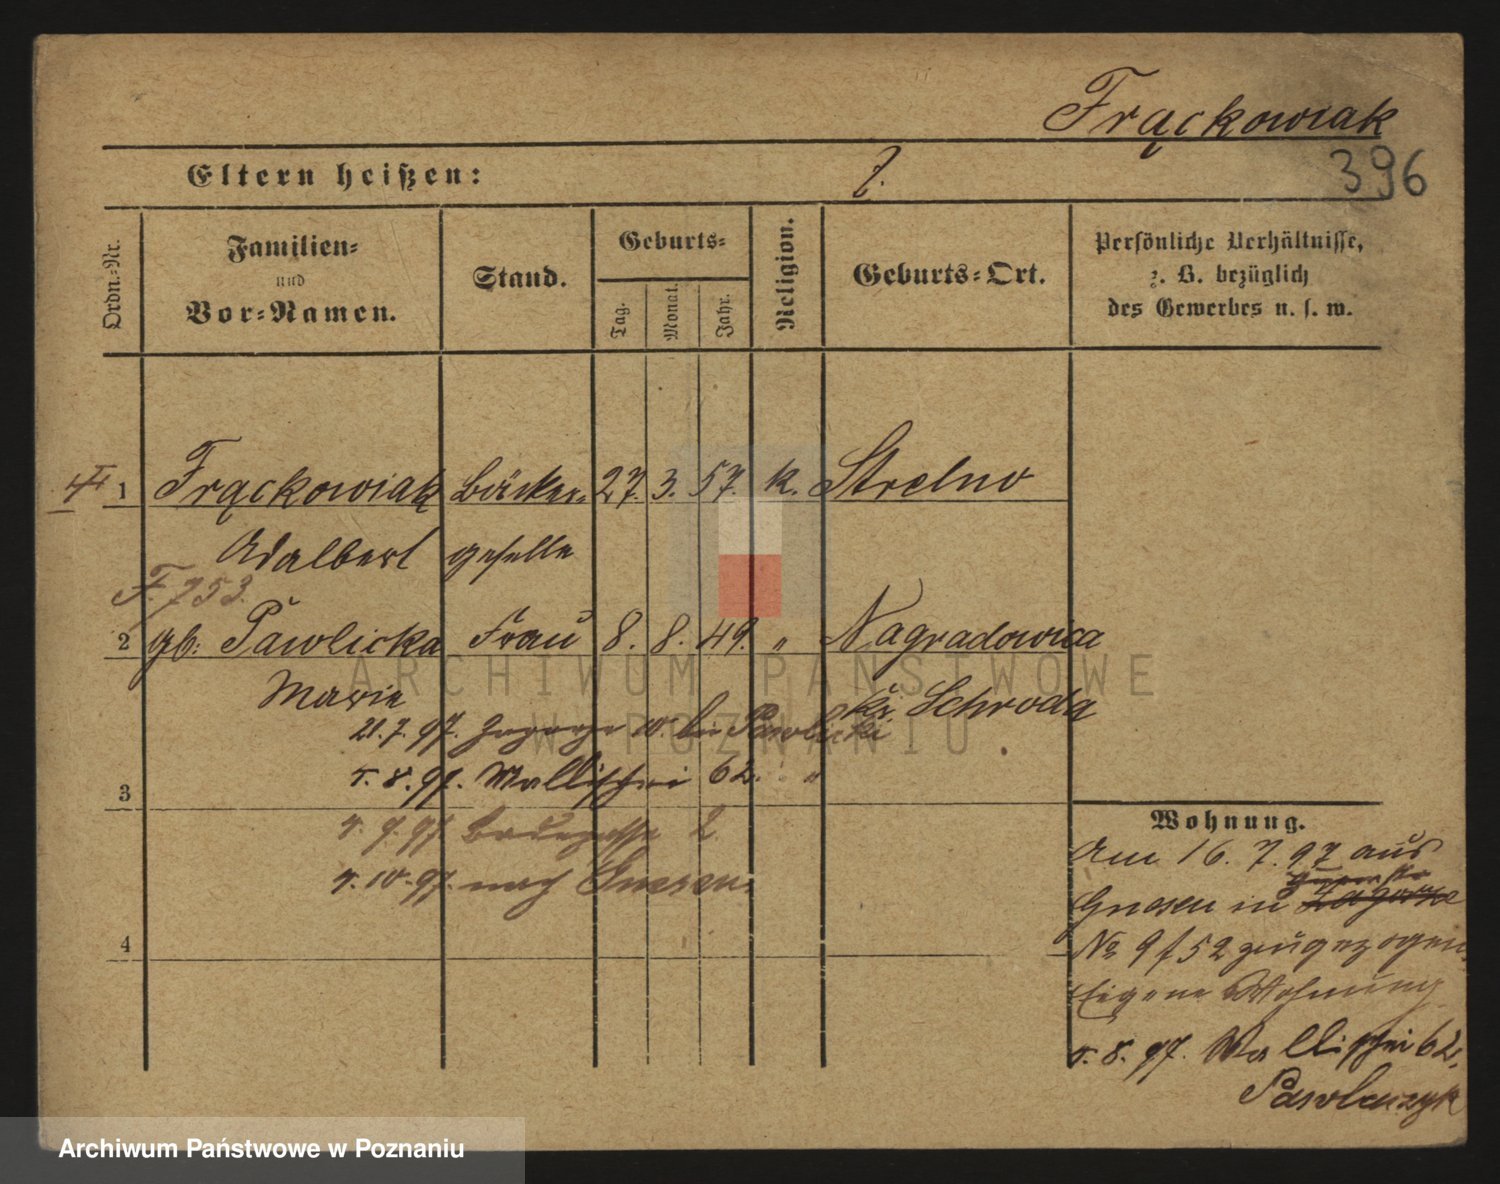 Frąckowiak
396
Eltern heißen: ?.
Ordn.-Nr.
Familien-
und
Vor-Namen.
Stand.
Geburts-
Tag.
Monat.
Jahr.
Religion.
Geburts-Ort.
Persönliche Verhältnisse,
z. B. bezüglich
des Gewerbes u. s. w.
1 Frąckowiak Bäcker- 27. 3. 57. k. Strelno
Adalbert geselle
F. 753.
2 gb: Pawlicka Frau 8. 8. 49. " Nagradowica
Marie Kr. Schroda
21.7.97. Zagorze 10. bei Pawlicki
5.8.97. Wallischei 62. "
3
97. 2
10.97. nach Gnesen.
4
Wohnung.
Am 16. 7. 97 aus
Gnesen in Zagorze
No 9/52 zugezogen.
Eigene Wohnung
5. 8. 97. Wallischei 62,
Pawlaczyk
ARCHIWUM PAŃSTWOWE
W POZNANIU
Archiwum Państwowe w Poznaniu